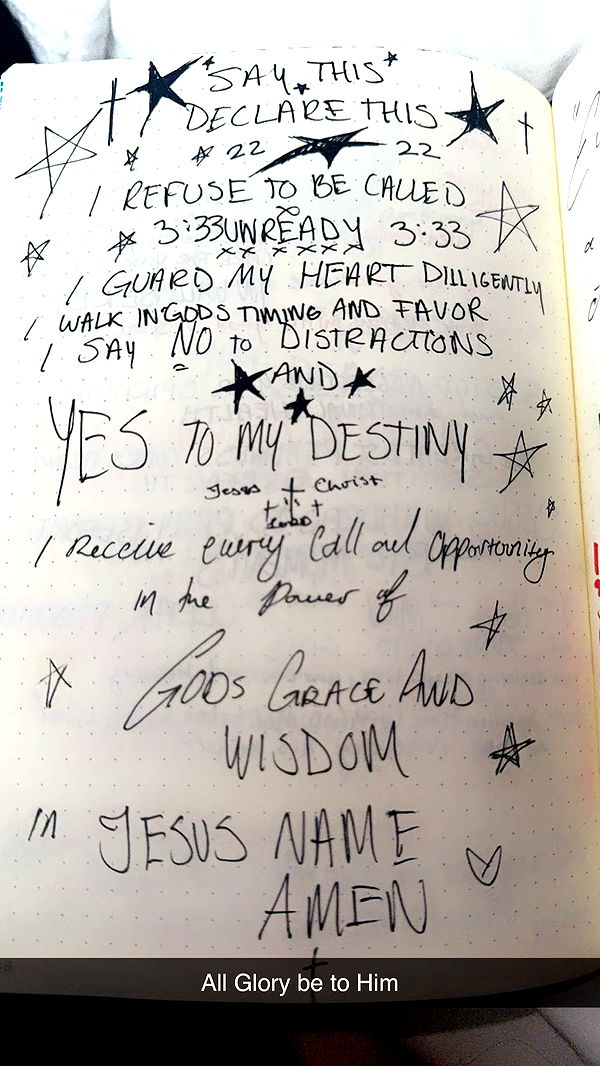 "SAY THIS"
DECLARE THIS
22 22
I REFUSE TO BE CALLED
3:33 UNREADY 3:33
I GUARD MY HEART DILLIGENTLY
I WALK IN GODS TIMING AND FAVOR
I SAY NO to DISTRACTIONS
AND
YES TO MY DESTINY
Jesus Christ
I Receive every Call and Opportunity
in the Power of
GODS GRACE AND
WISDOM
IN JESUS NAME
AMEN
All Glory be to Him